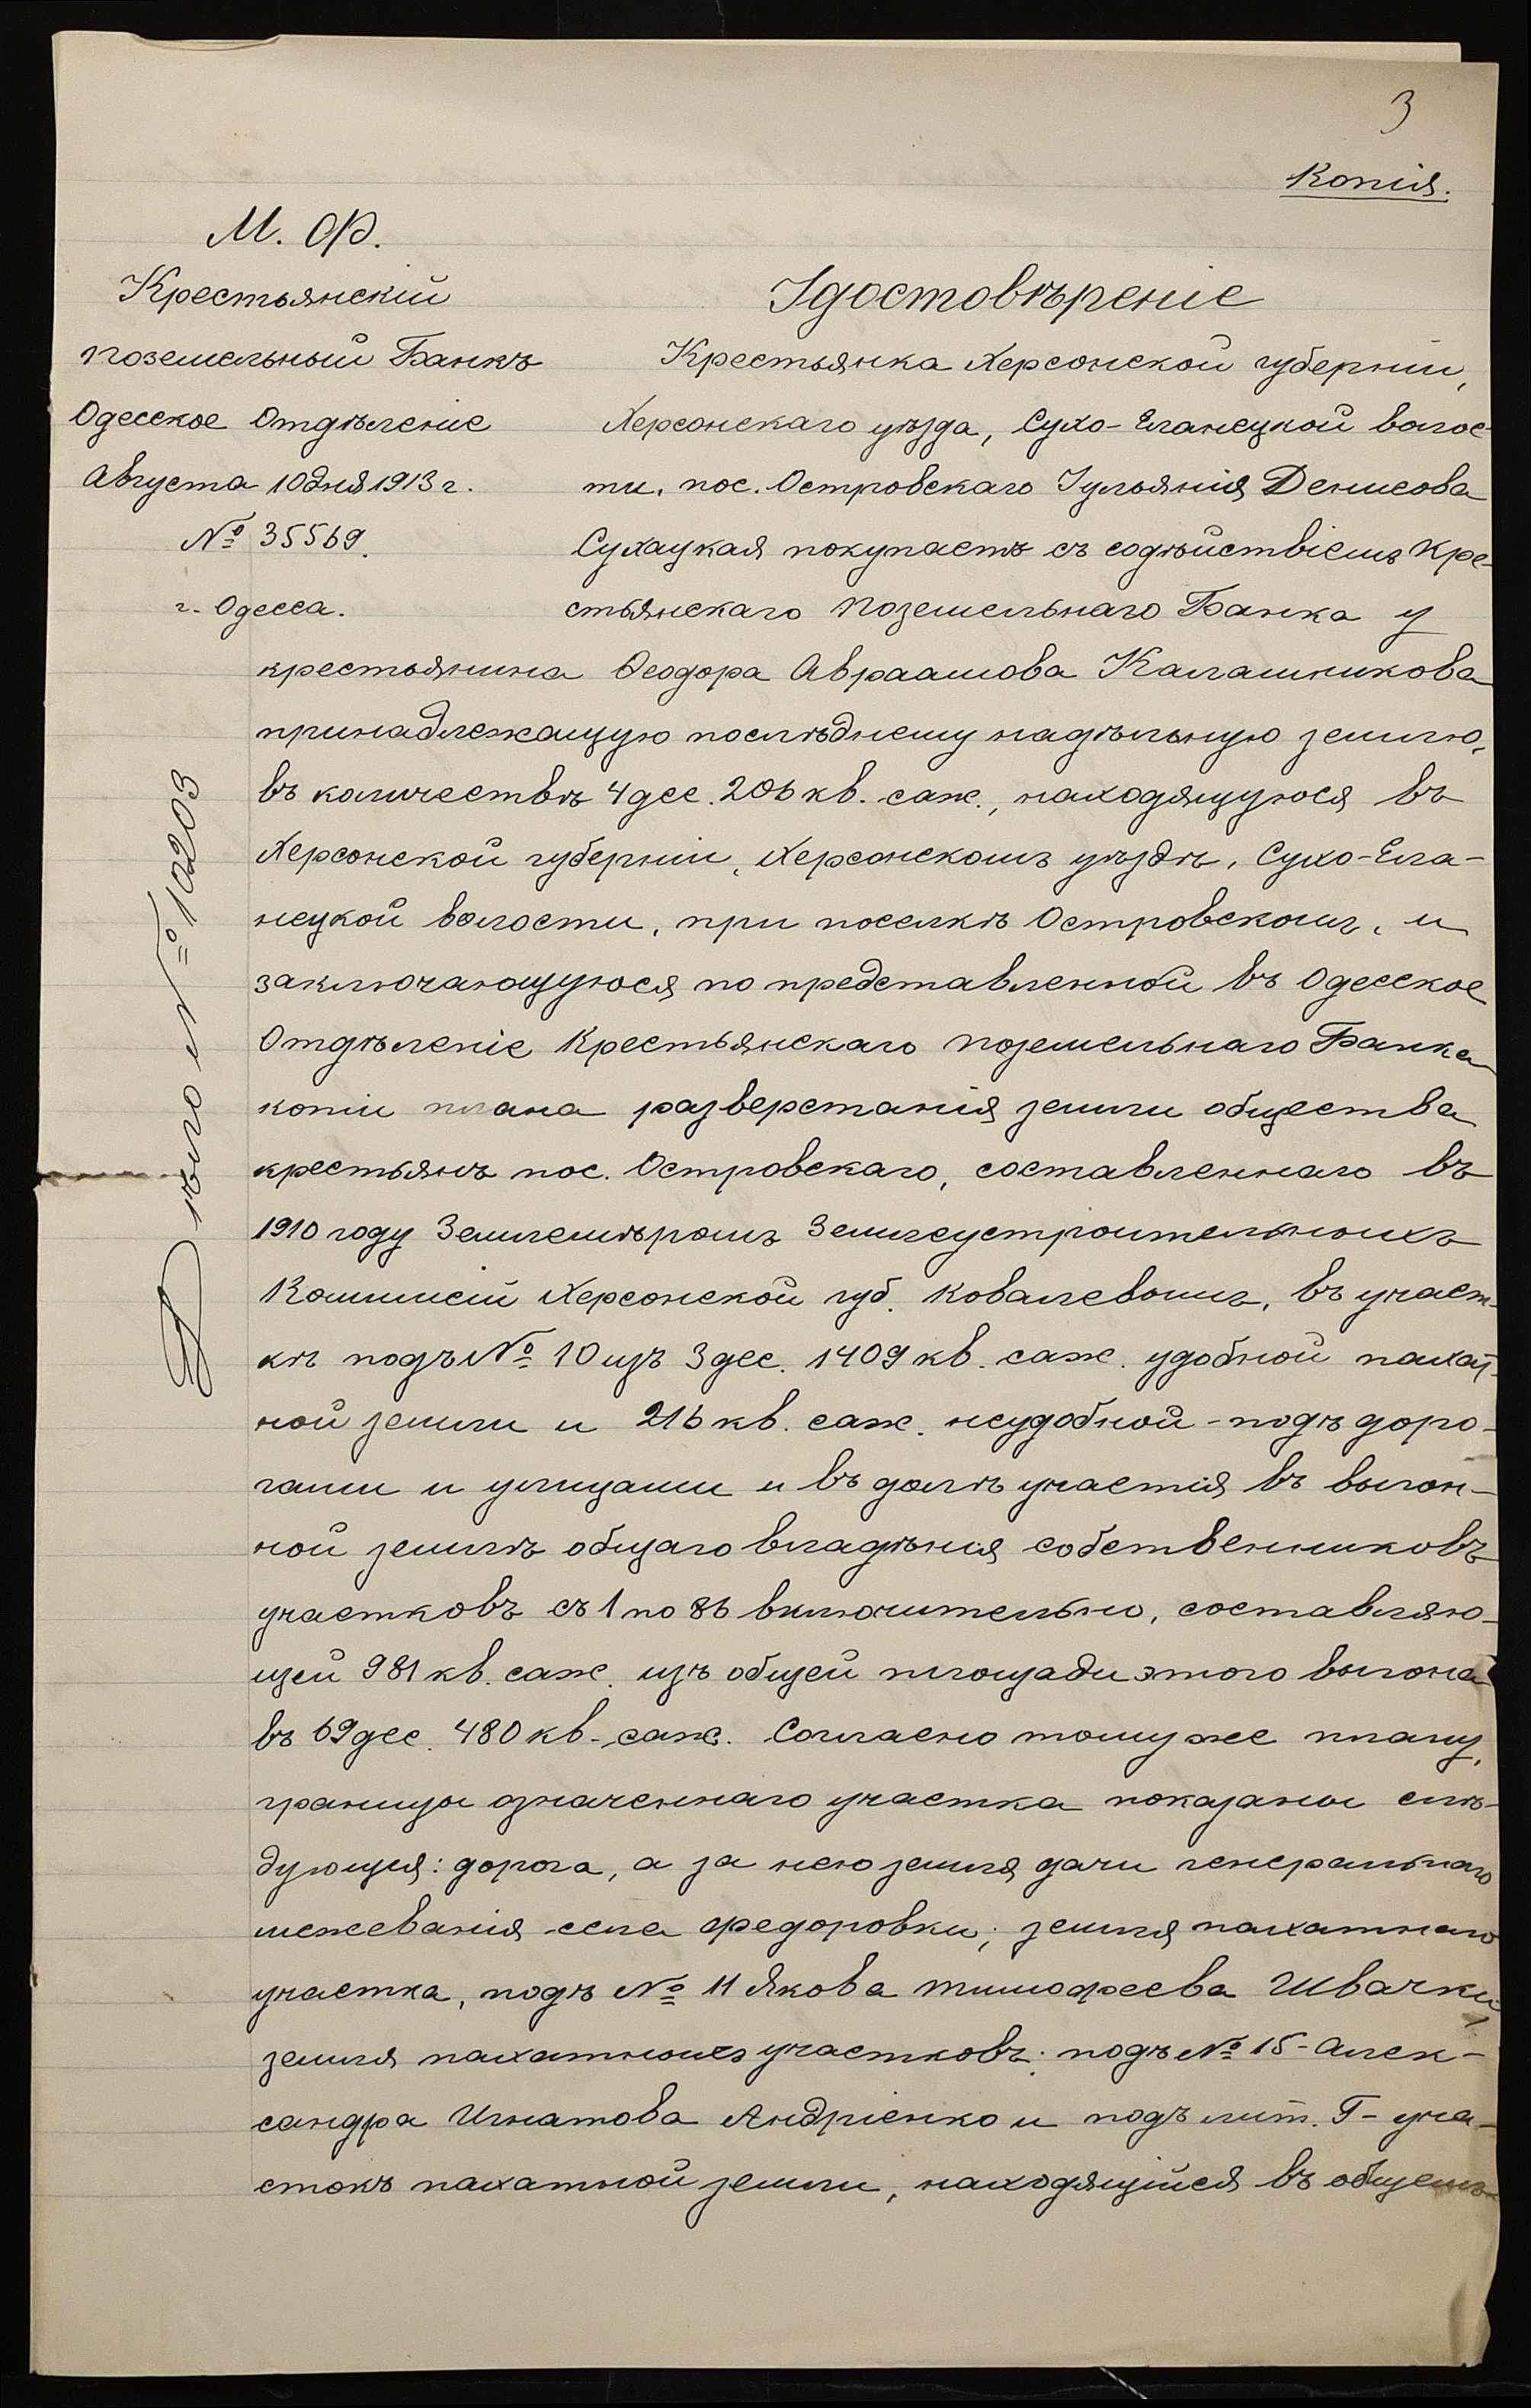 3
Копія.
М. Ф.
Крестьянскій
Поземельный Банкъ
Одесское Отдѣленіе
Августа 10 дня 1913 г.
№ 35569.
г. Одесса.
Дѣло № 10203
Удостовѣреніе
Крестьянка Херсонской губерніи,
Херсонскаго уѣзда, Сухо-Еланецкой волос-
ти, пос. Островскаго Іульянія Денисова
Сухацкая покупаетъ съ содѣйствіемъ Кре-
стьянскаго Поземельнаго Банка у
крестьянина Феодора Авраамова Калашникова
принадлежащую послѣднему надѣльную землю,
въ количествѣ 4 дес. 206 кв. саж., находящуюся въ
Херсонской губерніи, Херсонскомъ уѣздѣ, Сухо-Ела-
нецкой волости, при поселкѣ Островскомъ, и
заключающуюся по представленной въ Одесское
Отдѣленіе Крестьянскаго Поземельнаго Банка
копіи плана разверстанія земли общества
крестьянъ пос. Островскаго, составленнаго въ
1910 году Землемѣромъ Землеустроительныхъ
Коммисій Херсонской губ. Ковалевымъ, въ участ-
кѣ подъ № 10 изъ 3 дес. 1409 кв. саж. удобной пахат-
ной земли и 216 кв. саж. неудобной - подъ доро-
гами и улицами и въ долѣ участія въ выгон-
ной землѣ общаго владѣнія собственниковъ
участковъ съ 1 по 86 включительно, составляю-
щей 981 кв. саж. изъ общей площади этого выгона
въ 69 дес. 480 кв. саж. Согласно тому же плану,
границы означеннаго участка показаны слѣ-
дующія: дорога, а за нею земля дачи генеральнаго
межеванія села Федоровки; земля пахатнаго
участка, подъ № 11 Якова Тимофеева Швачки,
земля пахатныхъ участковъ: подъ № 15 - Алек-
сандра Игнатова Андріенко и подъ лит. Г - уча-
стокъ пахатной земли, находящійся въ общемъ